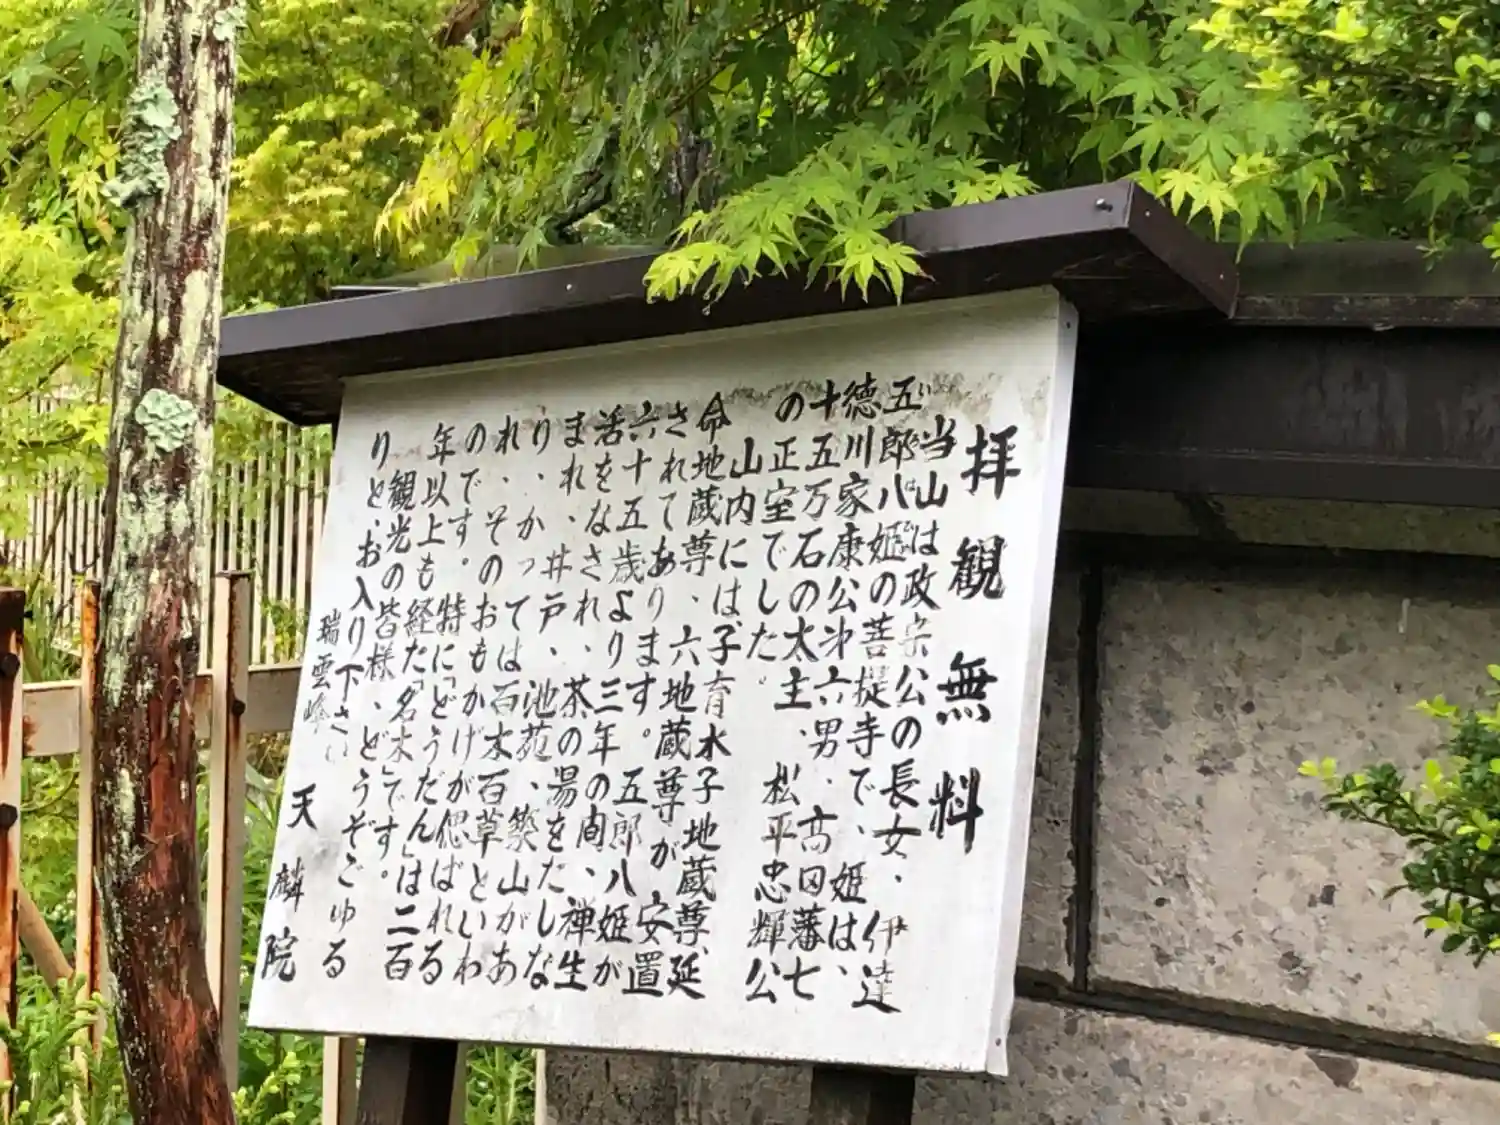 拝観無料
当山は政宗公の長女、伊達
五郎八姫の菩提寺で、姫は、
徳川家康公㐧六男、高田藩七
十五万石の太主、松平忠輝公
の正室でした。
山内には、子育水子地蔵尊、延
命地蔵尊、六地蔵尊が安置
されてあります。五郎八姫が
六十五歳より三年の間、禅生
活をなされ、茶の湯をたしな
まれ、井戸、池苑、築山があ
り、かつては百木百草といわ
れ、そのおもかげが偲ばれる
のです。特に「どうだん」は二百
年以上も経た「名木」です。
観光の皆様、どうぞごゆる
りと、お入り下さい
瑞雲峰 天麟院